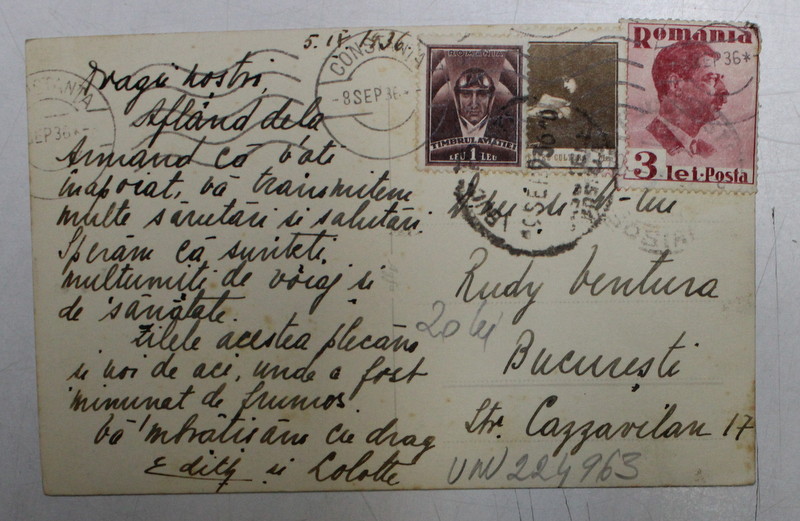 5.IX.1936
Dragii nostri,
Aflând dela
Armand că v'ati
înapoiat, vă transmitem
multe sărutări si salutări.
Sperăm că sunteti
multumiti de voiaj si
de sănătate.
Zilele acestea plecăm
si noi de aci, unde a fost
minunat de frumos.
Vă îmbrătisăm cu drag
Edith si Lolotte
CONSTANTA
-8 SEP 36
TIMBRUL AVIATIEI
LEU 1 LEU
România
3 lei·Posta
SOSIRE
Rudy Ventura
20 lei
Bucuresti
Str. Cazzavilan 17
UW 224963